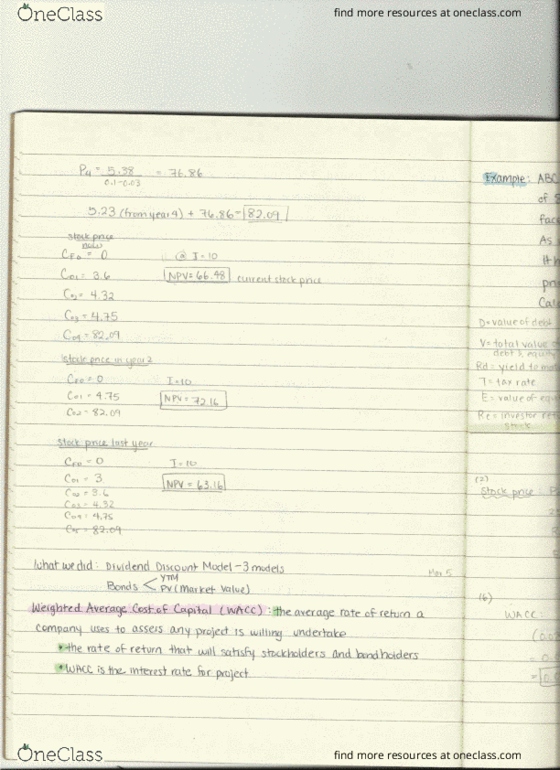 OneClass
find more resources at oneclass.com
P4 = 5.38 / 0.1-0.03 = 76.86
5.23 (from year 4) + 76.86 = 82.09
stock price now
CF0 = 0 @ I=10
C01 = 3.6 NPV = 66.48 current stock price
C02 = 4.32
C03 = 4.75
C04 = 82.09
stock price in year 2
CF0 = 0 I=10
C01 = 4.75 NPV = 72.16
C02 = 82.09
stock price last year
CF0 = 0 I=10
C01 = 3 NPV = 63.16
C02 = 3.6
C03 = 4.32
C04 = 4.75
C05 = 82.09
What we did: Dividend Discount Model - 3 models
Bonds < YTM
PV (Market Value)
Mar 5
Weighted Average Cost of Capital (WACC): the average rate of return a
company uses to assess any project is willing undertake
• the rate of return that will satisfy stockholders and bondholders
• WACC is the interest rate for project
Example: ABC
of $
face
As
It h
pri
Calc
D = value of debt
V = total value of
debt & equity
Rd = yield to mat
T = tax rate
E = value of equi
Re = investor ret
stock
(2)
Stock price: P
(6)
WACC:
(0.0
= 0.0
OneClass
find more resources at oneclass.com